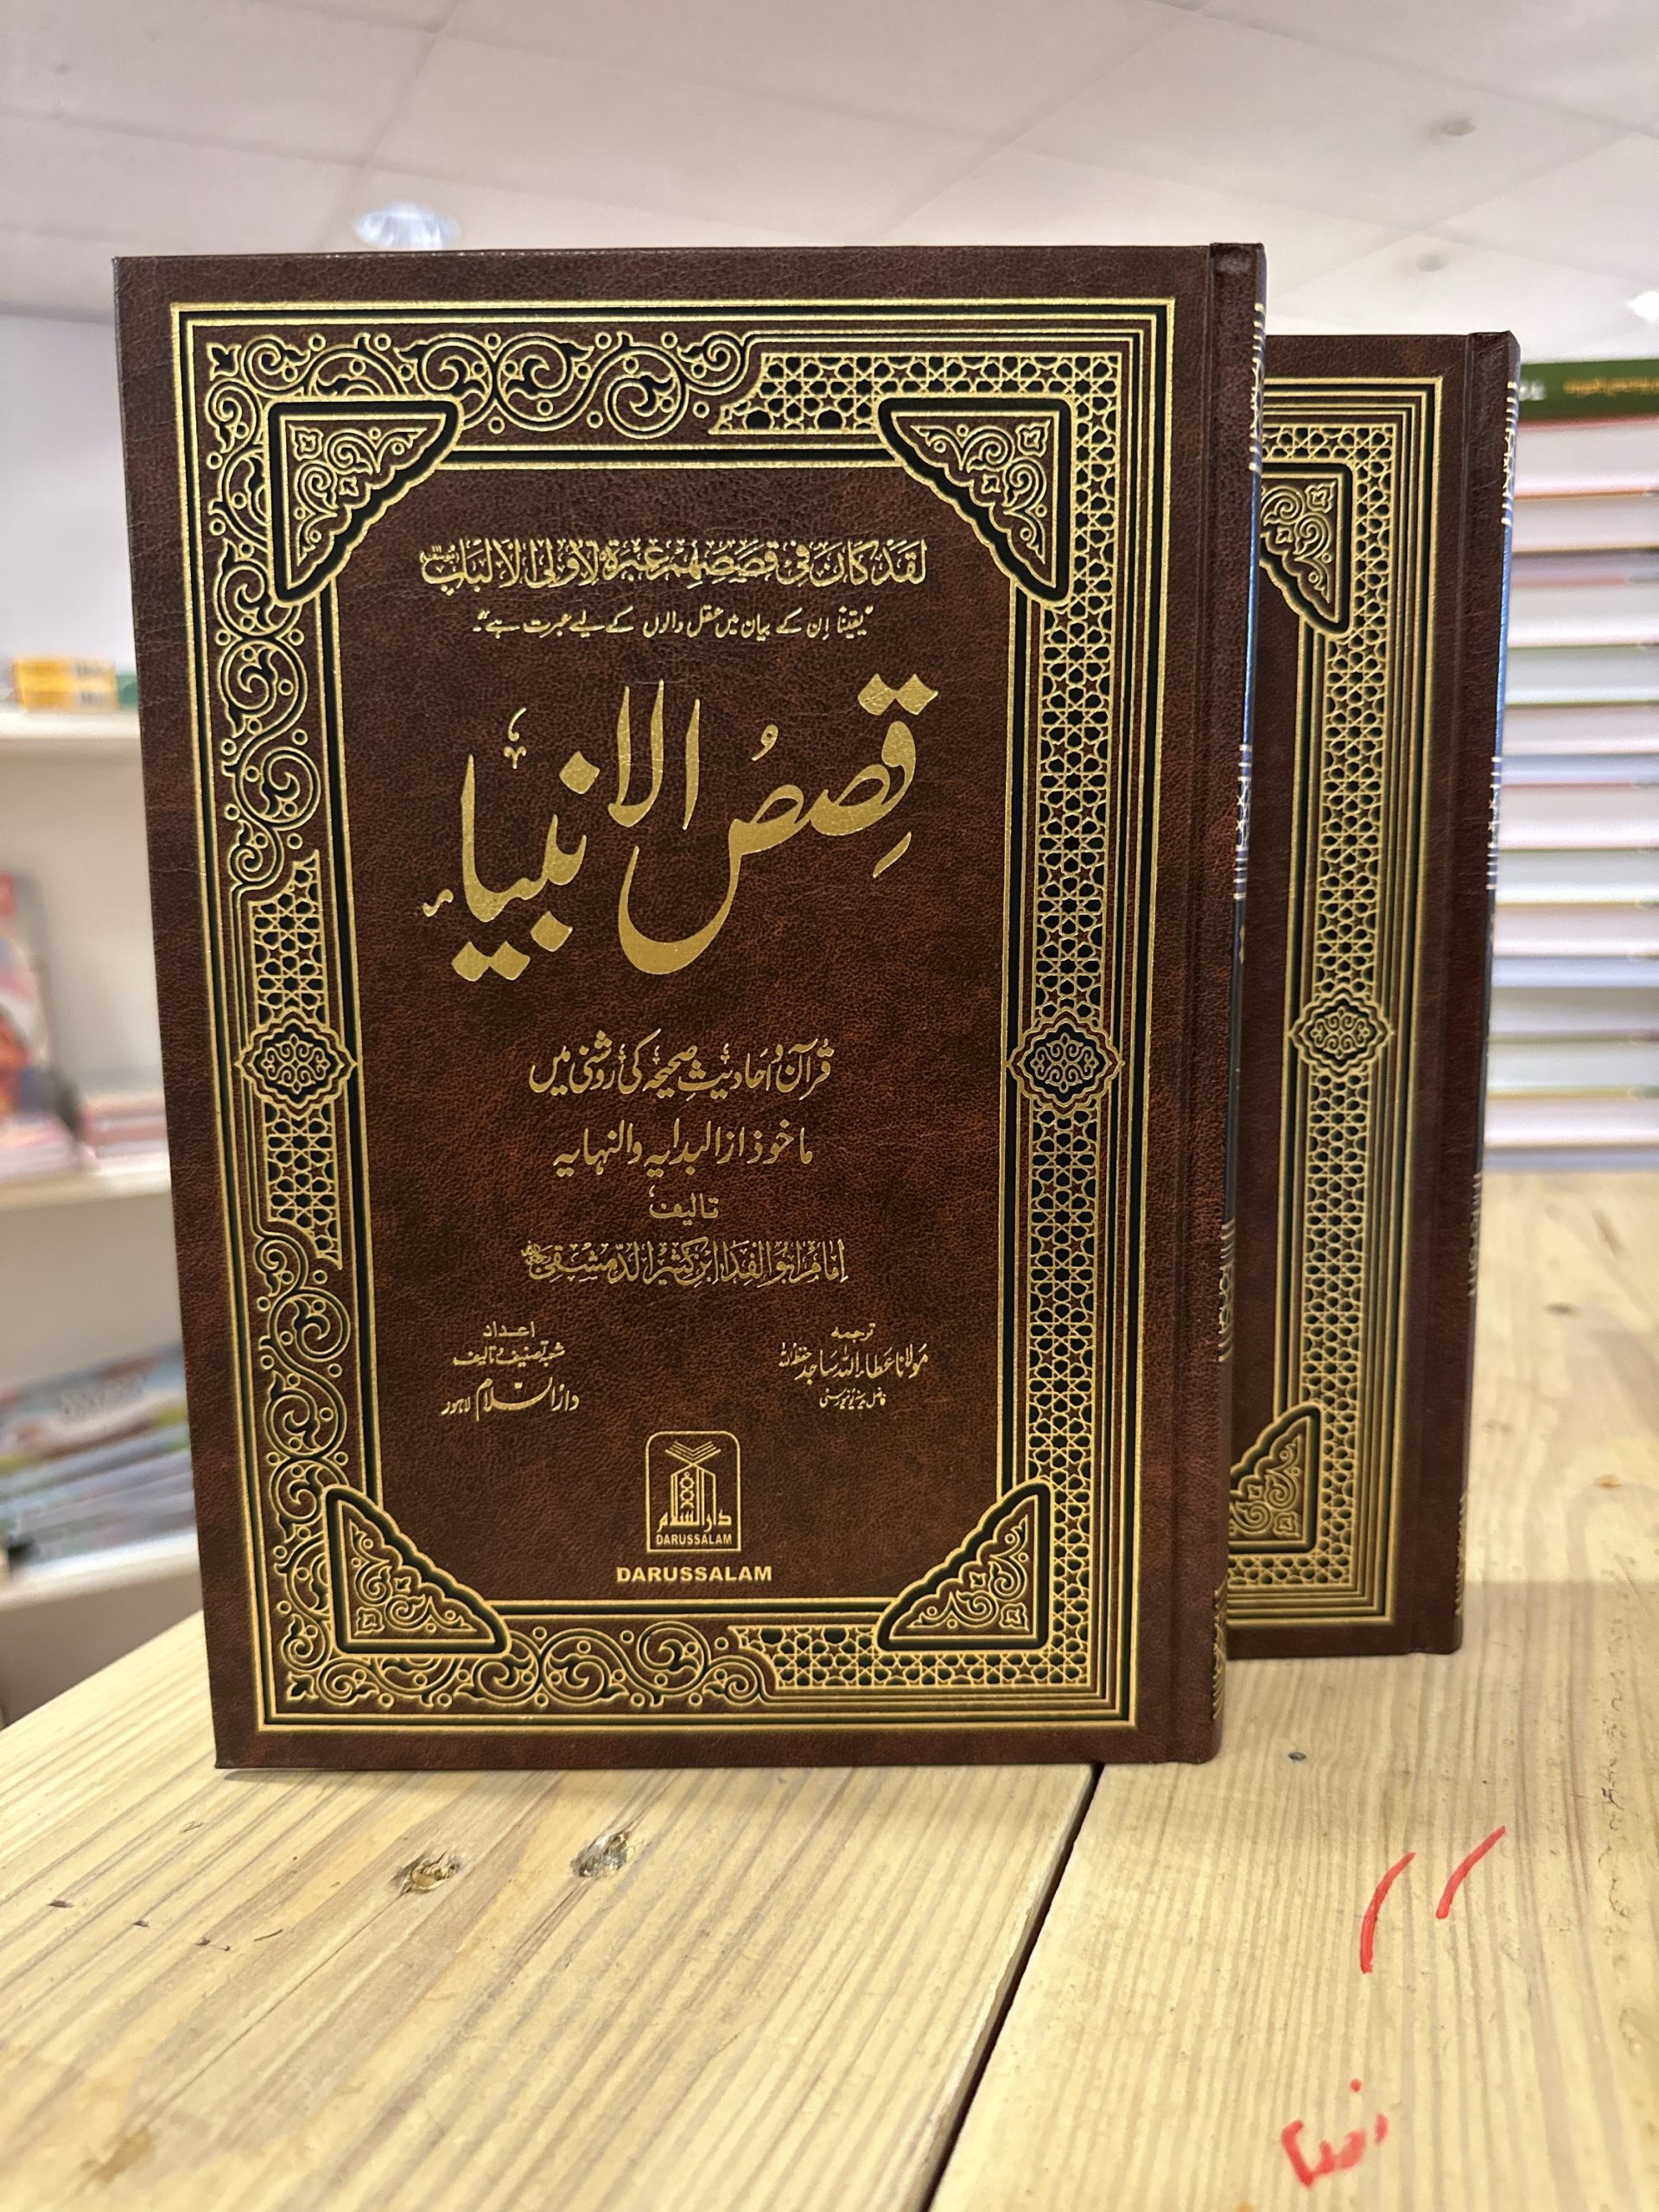 لقد كان في قصصهم عبرة لأولي الألباب
"یقیناً اِن کے بیان میں عقل والوں کے لیے عبرت ہے"۔
قصص الانبیاء
قرآن و احادیثِ صحیحہ کی روشنی میں
ماخوذ از البدایہ والنہایہ
تالیف
امام ابو الفداء ابن کثیر الدمشقی
ترجمہ
مولانا عطاء اللہ ساجد حفظہ اللہ
فاضل مدینہ یونیورسٹی
اعداد
شعبہ تصنیف و تالیف
دارالسلام لاہور
دارالسلام
DARUSSALAM
DARUSSALAM